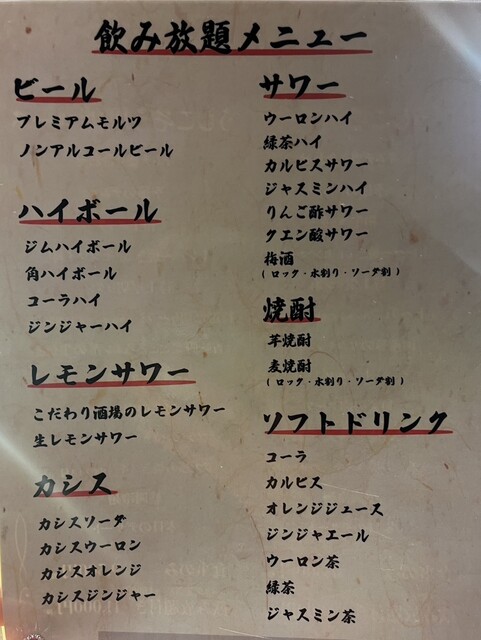 飲み放題メニュー
ビール
プレミアムモルツ
ノンアルコールビール
ハイボール
ジムハイボール
角ハイボール
コーラハイ
ジンジャーハイ
レモンサワー
こだわり酒場のレモンサワー
生レモンサワー
カシス
カシスソーダ
カシスウーロン
カシスオレンジ
カシスジンジャー
サワー
ウーロンハイ
緑茶ハイ
カルピスサワー
ジャスミンハイ
りんご酢サワー
クエン酸サワー
梅酒
(ロック・水割り・ソーダ割)
焼酎
芋焼酎
麦焼酎
(ロック・水割り・ソーダ割)
ソフトドリンク
コーラ
カルピス
オレンジジュース
ジンジャエール
ウーロン茶
緑茶
ジャスミン茶